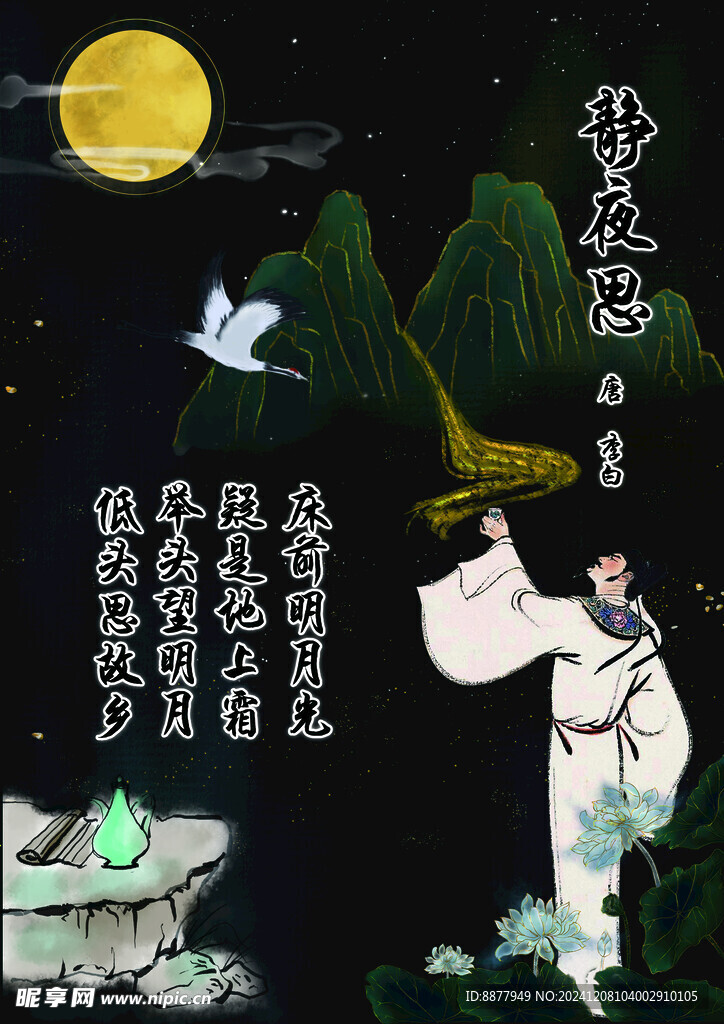 静夜思
唐 李白
床前明月光
疑是地上霜
举头望明月
低头思故乡
昵享网 www.nipic.cn
ID:8877949 NO:20241208104002910105